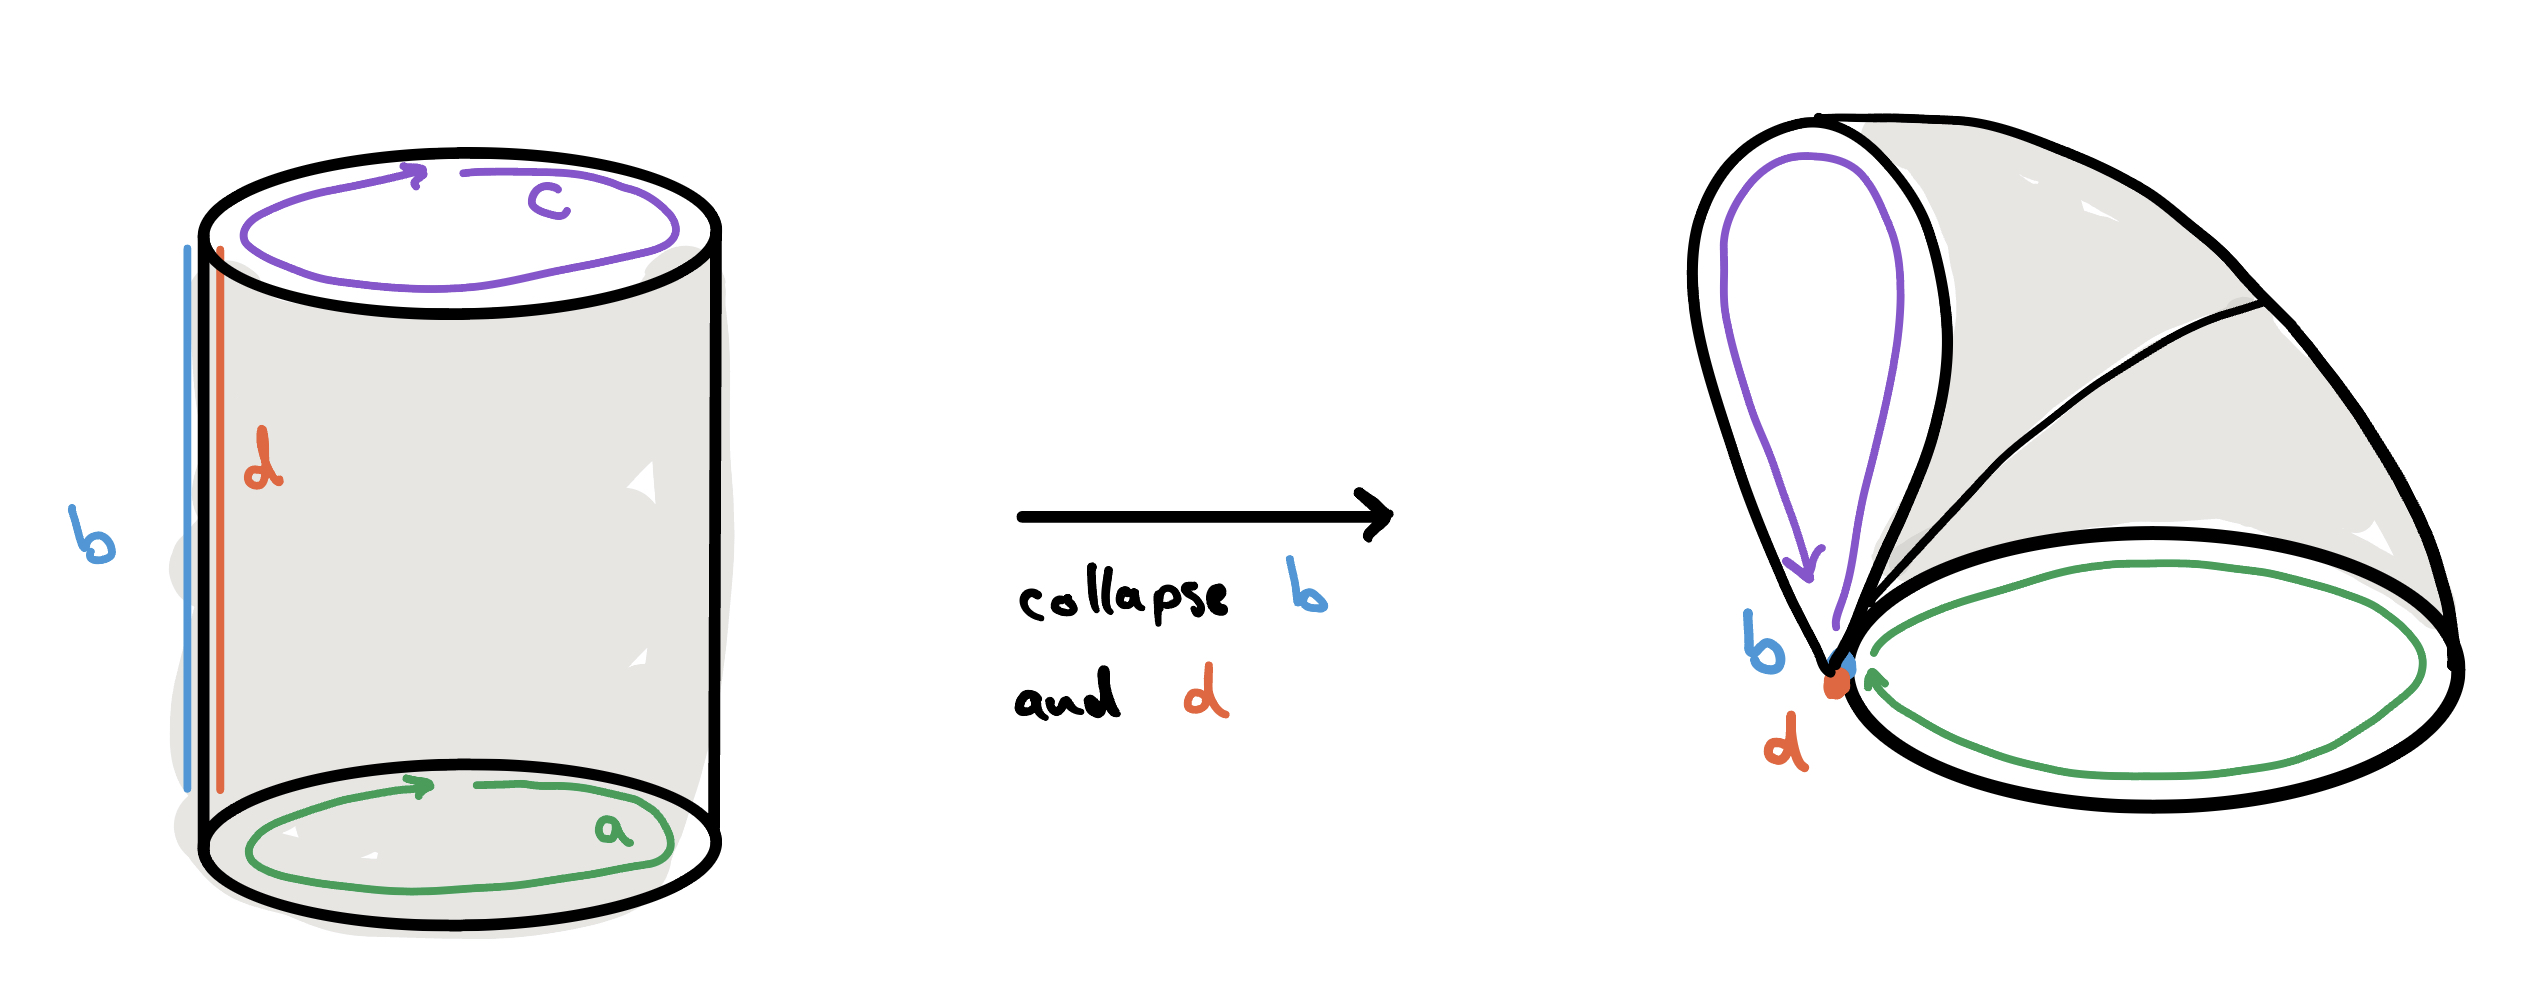 c
d
b
a
collapse b
and d
b
d